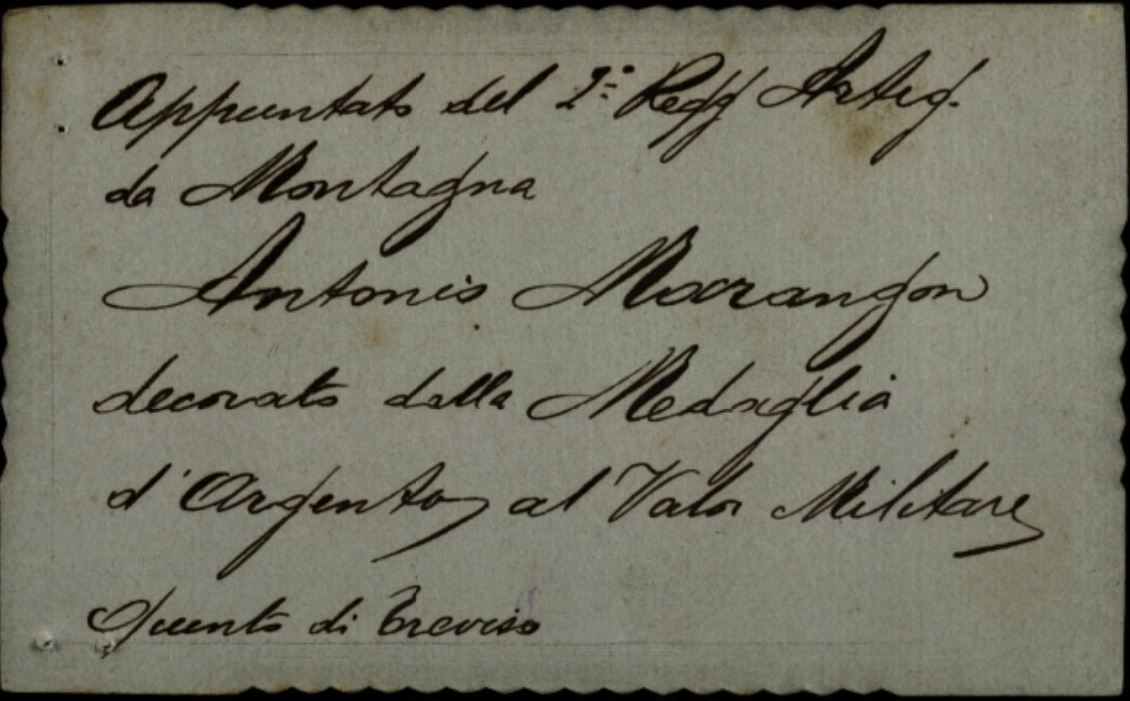 Appuntato del 2º Regg Artig.
da Montagna
Antonio Marangon
decorato dalla Medaglia
d'Argento al Valor Militare
Quinto di Treviso